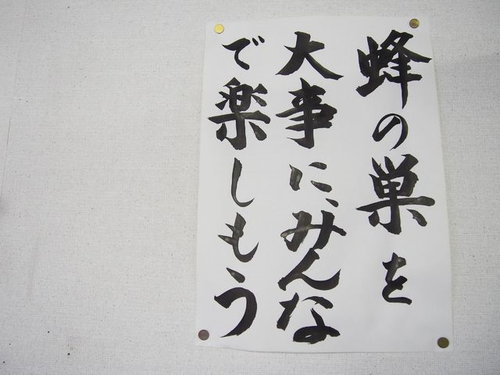 蜂の巣を
大事に、みんな
で楽しもう